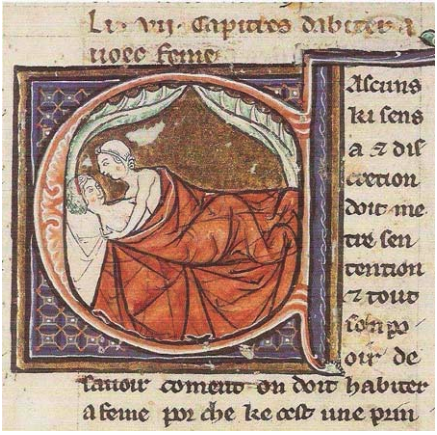 Li · vii · Capitres dabiter a
uoec feme
CAscuns
ki sens
a ⁊ dis
cretion
doit me
tre sen
tention
⁊ tout
son po
oir de
sauoir coment on doit habiter
a feme por che ke cest une prin